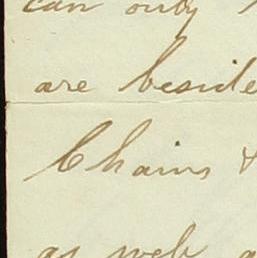 can only
are beside
Chains &
as web a